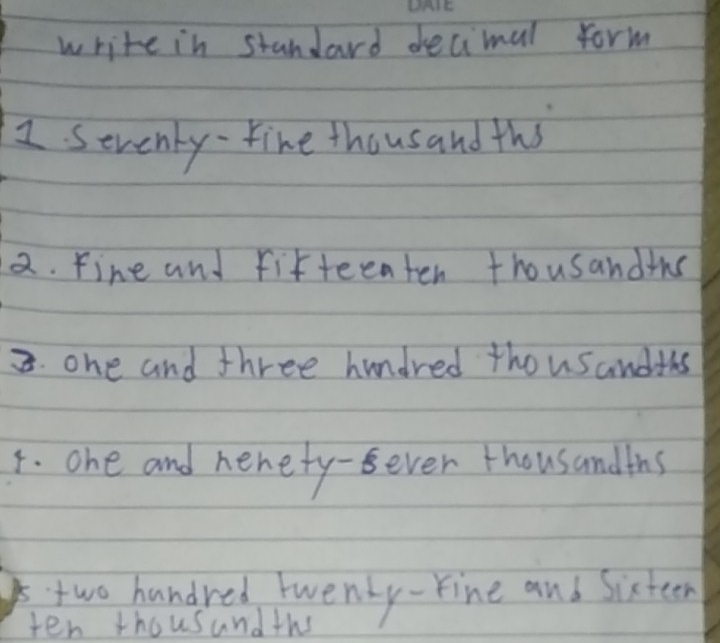 DATE
write in standard decimal form
1 Seventy-five thousandths
2. Five and fifteen ten thousandths
3. one and three hundred thousandths
4. one and nenety-seven thousandths
5 two hundred twenty-five and Sixteen
ten thousandths